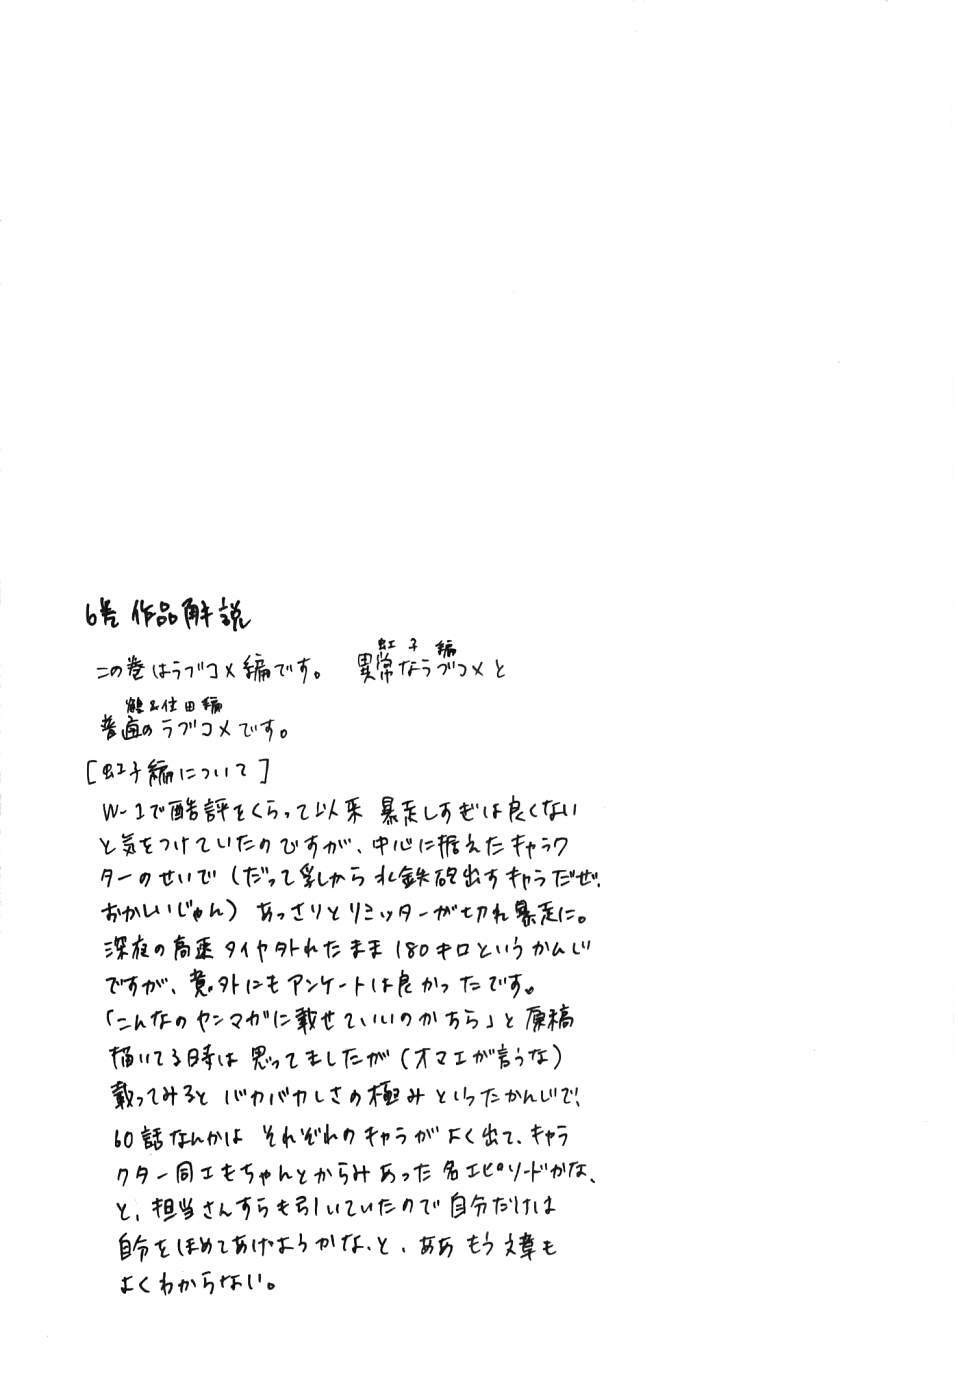 6巻 作品解説
この巻はラブコメ編です。 異常なラブコメと
虹子編
普通のラブコメです。
鶴&住田編
[虹子編について]
W-1で酷評をくらって以来 暴走しすぎは良くない
と気をつけていたのですが、中心に据えたキャラク
ターのせいで(だって乳から水鉄砲出すキャラだぜ、
おかしいじゃん) あっさりとリミッターが切れ暴走に。
深夜の高速タイヤ外れたまま180キロというかんじ
ですが、意外にもアンケートは良かったです。
「こんなのヤンマガに載せていいのかしら」と原稿
描いてる時は思ってましたが(オマエが言うな)
載ってみるとバカバカしさの極みといったかんじで、
60話なんかは それぞれのキャラがよく出て、キャラ
クター同士もちゃんとからみあった名エピソードかな、
と、担当さんすらも引いていたので自分だけは
自分をほめてあげようかな、と、ああもう文章も
よくわからない。